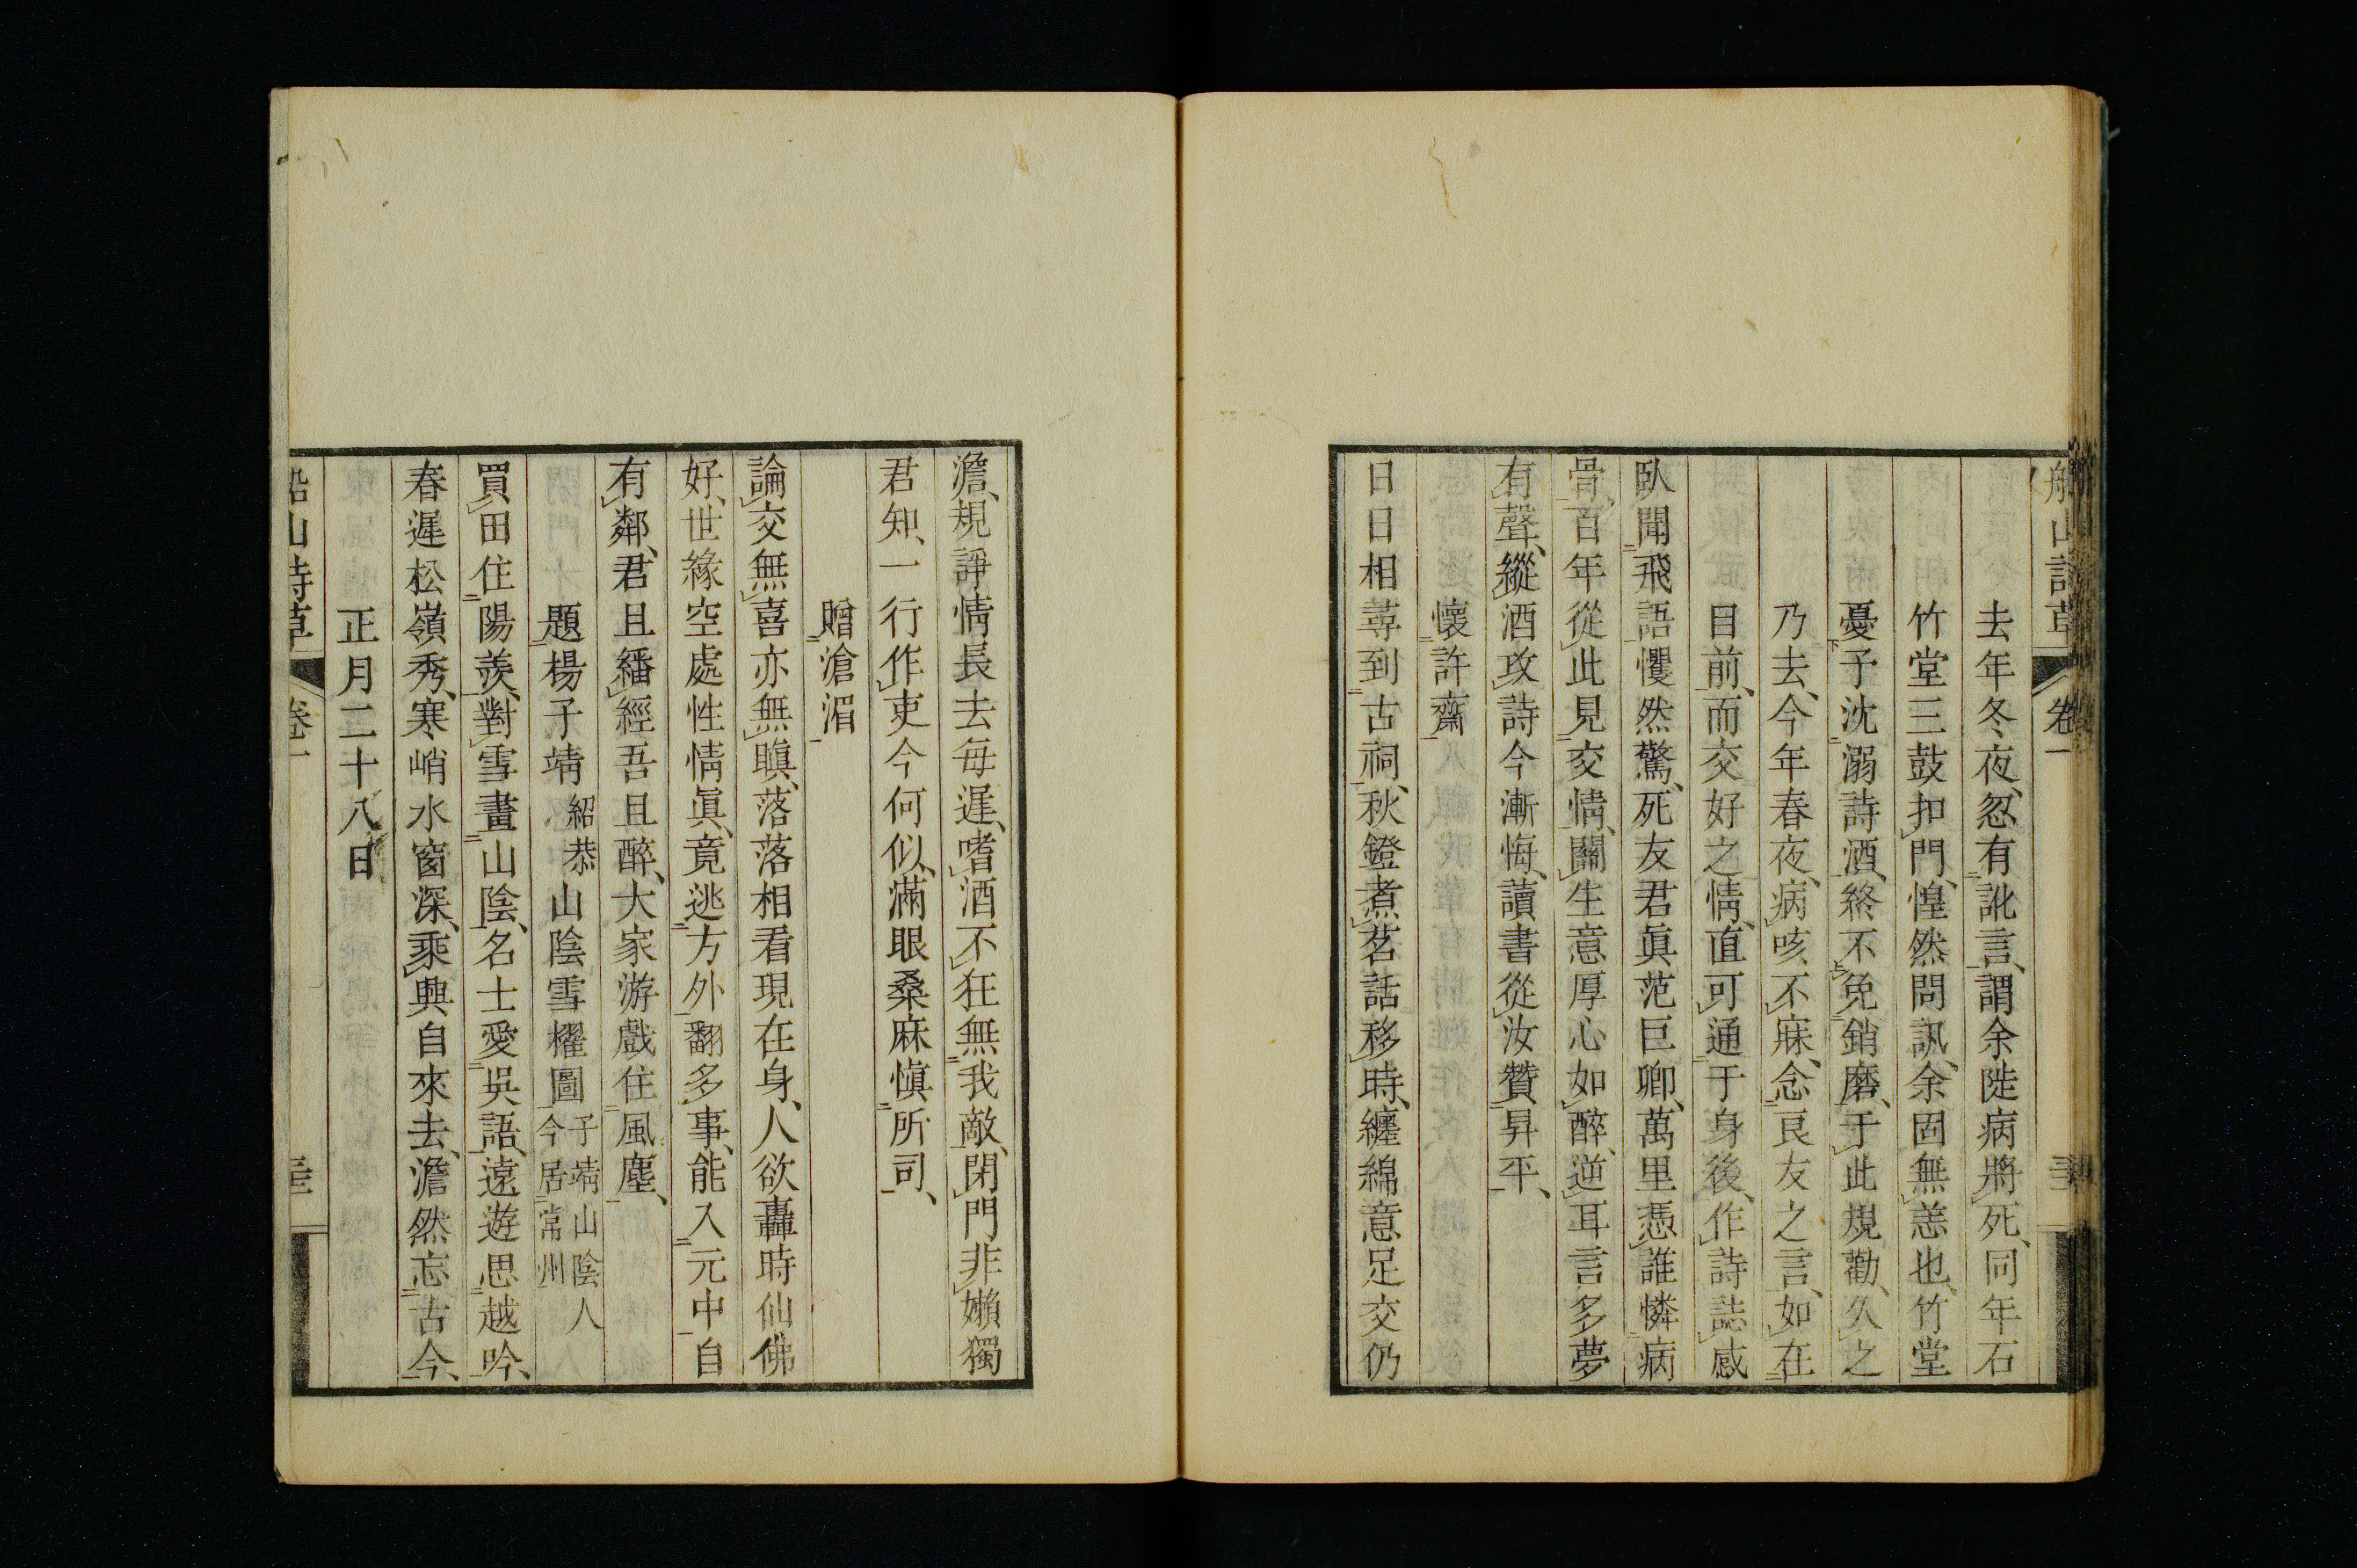 船山詩草 卷一
去年冬夜、忽有訛言、謂余陡病將死、同年石
竹堂三鼓扣門、惶然問訊、余固無恙也、竹堂
憂予沈溺詩酒、終不免銷磨、于此規勸、久之
乃去、今年春夜、病咳不寐、念良友之言、如在
目前、而交好之情、直可通于身後、作詩誌感
臥聞飛語懼然驚、死友君眞范巨卿、萬里憑誰憐病
骨、百年從此見交情、關生意厚心如醉、逆耳言多夢
有聲、縱酒攻詩今漸悔、讀書從汝贊昇平、
懷許齋
日日相尋到古祠、秋鐙煮茗話移時、纏綿意足交仍
澹、規諍情長去每遲、嗜酒不狂無我敵、閉門非嬾獨
君知、一行作吏今何似、滿眼桑麻愼所司、
贈滄湄
論交無喜亦無瞋、落落相看現在身、人欲轟時仙佛
好、世緣空處性情眞、竟逃方外翻多事、能入元中自
有鄰、君且繙經吾且醉、大家游戲住風塵、
題楊子靖紹恭山陰雪櫂圖子靖山陰人今居常州
買田住陽羨、對雪畫山陰、名士愛吳語、遠遊思越吟、
春遲松嶺秀、寒峭水窗深、乘興自來去、澹然忘古今、
正月二十八日
船山詩草 卷一